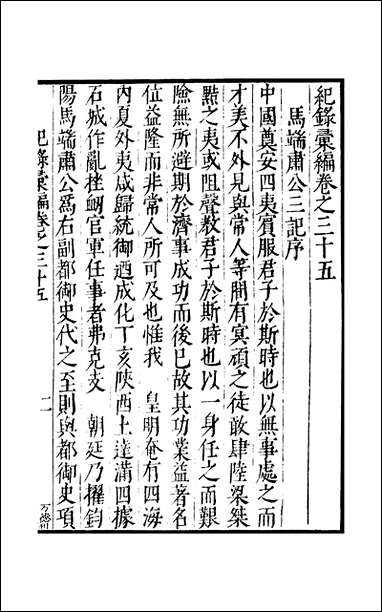 紀錄彙編卷之三十五
馬端肅公三記序
中國奠安四夷賓服君子於斯時也以無事處之而
才美不外見與常人等間有冥頑之徒敢肆陸梁桀
黠之夷或阻聲教君子於斯時也以一身任之而艱
險無所避期於濟事成功而後已故其功業益著名
位益隆而非常人所可及也惟我 皇明奄有四海
內夏外夷咸歸統御迺成化丁亥陜西土達滿四據
石城作亂挫衂官軍任事者弗克支 朝廷乃擢鈞
陽馬端肅公爲右副都御史代之至則與都御史項
紀錄彙編卷之三十五
二